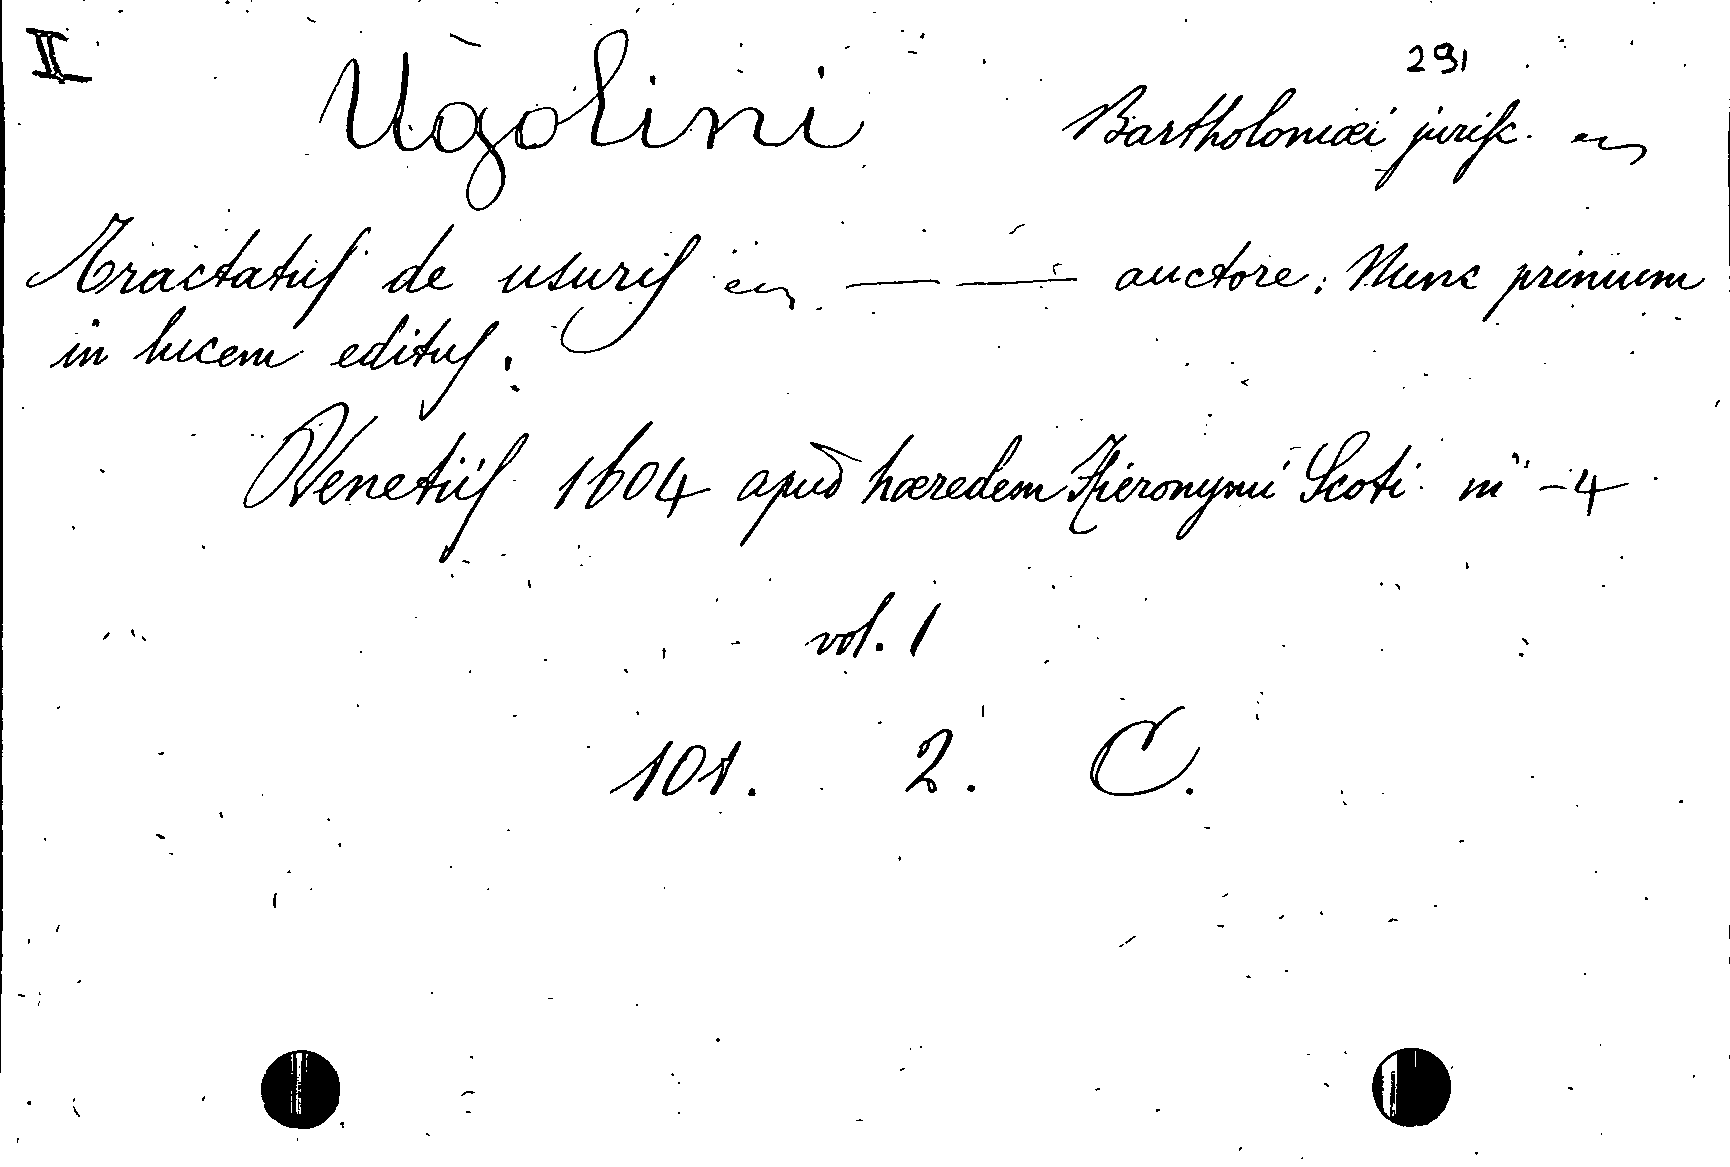 II
291
Ugolini Bartholomæi jurisc.
Tractatus de usuris —— —— auctore; Nunc primum
in lucem editus.
Venetiis 1604 apud hæredem Hieronymi Scoti in -4
vol. 1
101. 2. C.